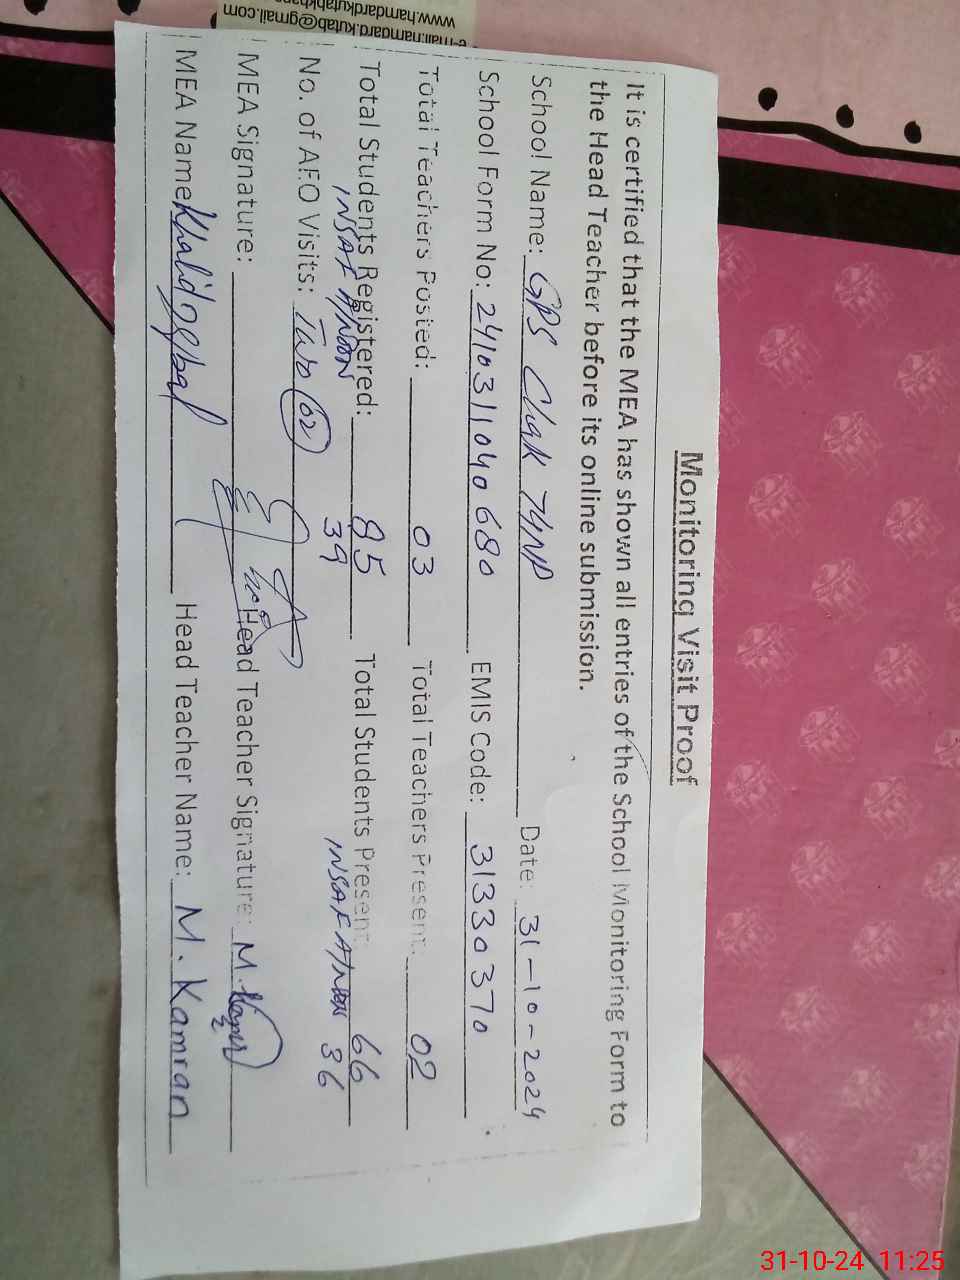 Monitoring Visit Proof
It is certified that the MEA has shown all entries of the School Monitoring Form to
the Head Teacher before its online submission.
School Name: GPS Chak 74NP Date: 31-10-2024
School Form No: 2410311040680 EMIS Code: 31330370
Total Teachers Posted: 03 Total Teachers Present: 02
Total Students Registered: 85 Total Students Present: 66
INSAF 39 INSAF 36
No. of AEO Visits: Two (02)
MEA Signature: Head Teacher Signature: M.
MEA Name Khalid Iqbal Head Teacher Name: M. Kamran
e-mail:hamdard.kutab@gmail.com
31-10-24 11:25